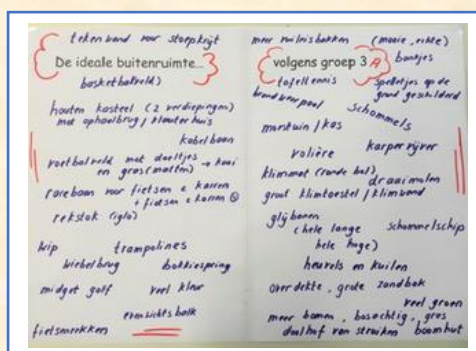 tekenwand voor stoepkrijt
De ideale buitenruimte...
basketbalveld)
houten kasteel (2 verdiepingen)
met ophaalbrug / klauterhuis
kabelbaan
voetbalveld met doeltjes → kooi
en gras(matten)
racebaan voor fietsen & karren
+ fietsen & karren ☺
rekstok (iglo)
wip trampolines
wiebelbrug bokkiespring
midget golf veel kleur
evenwichtsbalk
fietsenrekken
meer vuilnisbakken (mooie, echte)
volgens groep 3 A bankjes
tafeltennis spelletjes op de
brandweerpaal grond geschilderd
schommels
moestuin / kas
volière karpervijver
klimmat (ronde bal)
draaimolen
groot klimtoestel / klimwand
glijbanen
(hele lange schommelschip
hele hoge)
heuvels en kuilen
overdekte, grote zandbak
veel groen
meer bomen, bosachtig, gras
doolhof van struiken boomhut